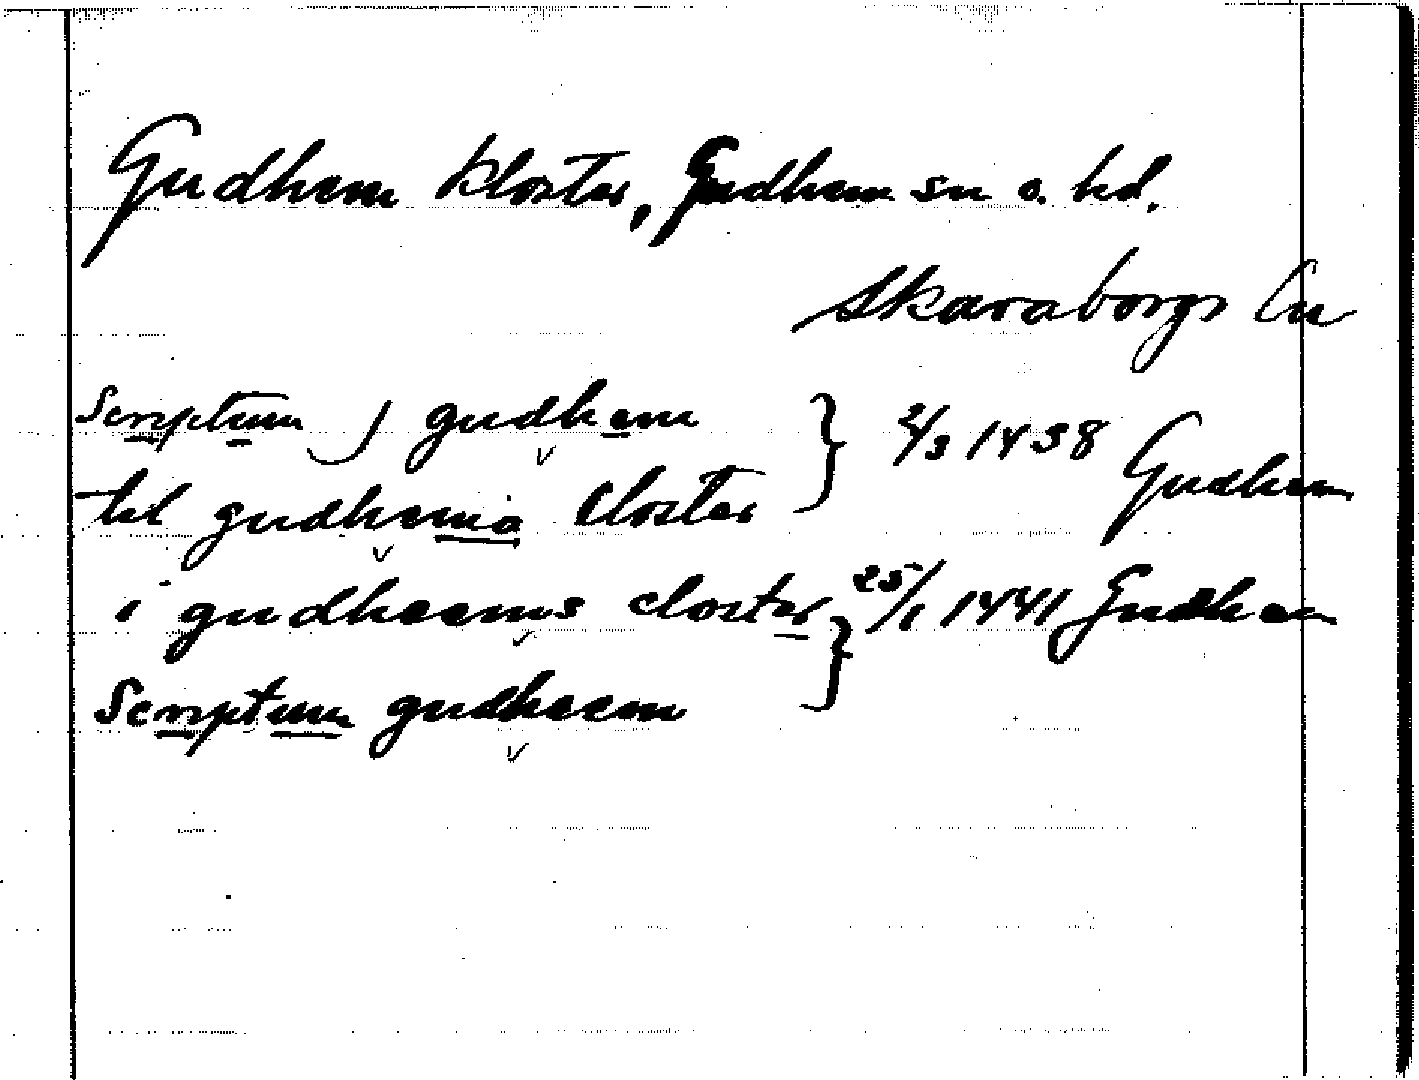 Gudhem kloster, Gudhem sn o. hd.
Skaraborgs län
Scriptum j gudhem } 2/3 1438 Gudhem
til gudhems closter
i gudheems closter } 25/1 1441 Gudhem
Scriptum gudheem